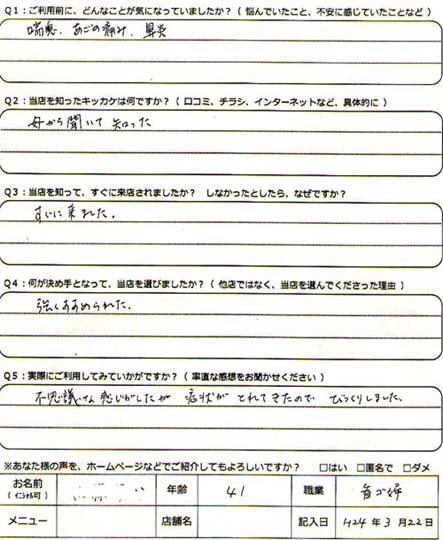 Q1：ご利用前に、どんなことが気になっていましたか？（ 悩んでいたこと、不安に感じていたことなど ）
喘息、あごの痛み、鼻炎
Q2：当店を知ったキッカケは何ですか？（ 口コミ、チラシ、インターネットなど、具体的に ）
母から聞いて知った
Q3：当店を知って、すぐに来店されましたか？　しなかったとしたら、なぜですか？
すぐに来ました。
Q4：何が決め手となって、当店を選びましたか？（ 他店ではなく、当店を選んでくださった理由 ）
強くすすめられた。
Q5：実際にご利用してみていかがですか？（ 率直な感想をお聞かせください ）
不思議な感じがしたが 症状が とれてきたので びっくりしました。
※あなた様の声を、ホームページなどでご紹介してもよろしいですか？　□はい　□匿名で　□ダメ
お名前（イニシャル可） 年齢 41 職業
メニュー 店舗名 記入日 H24 年 3 月 22 日